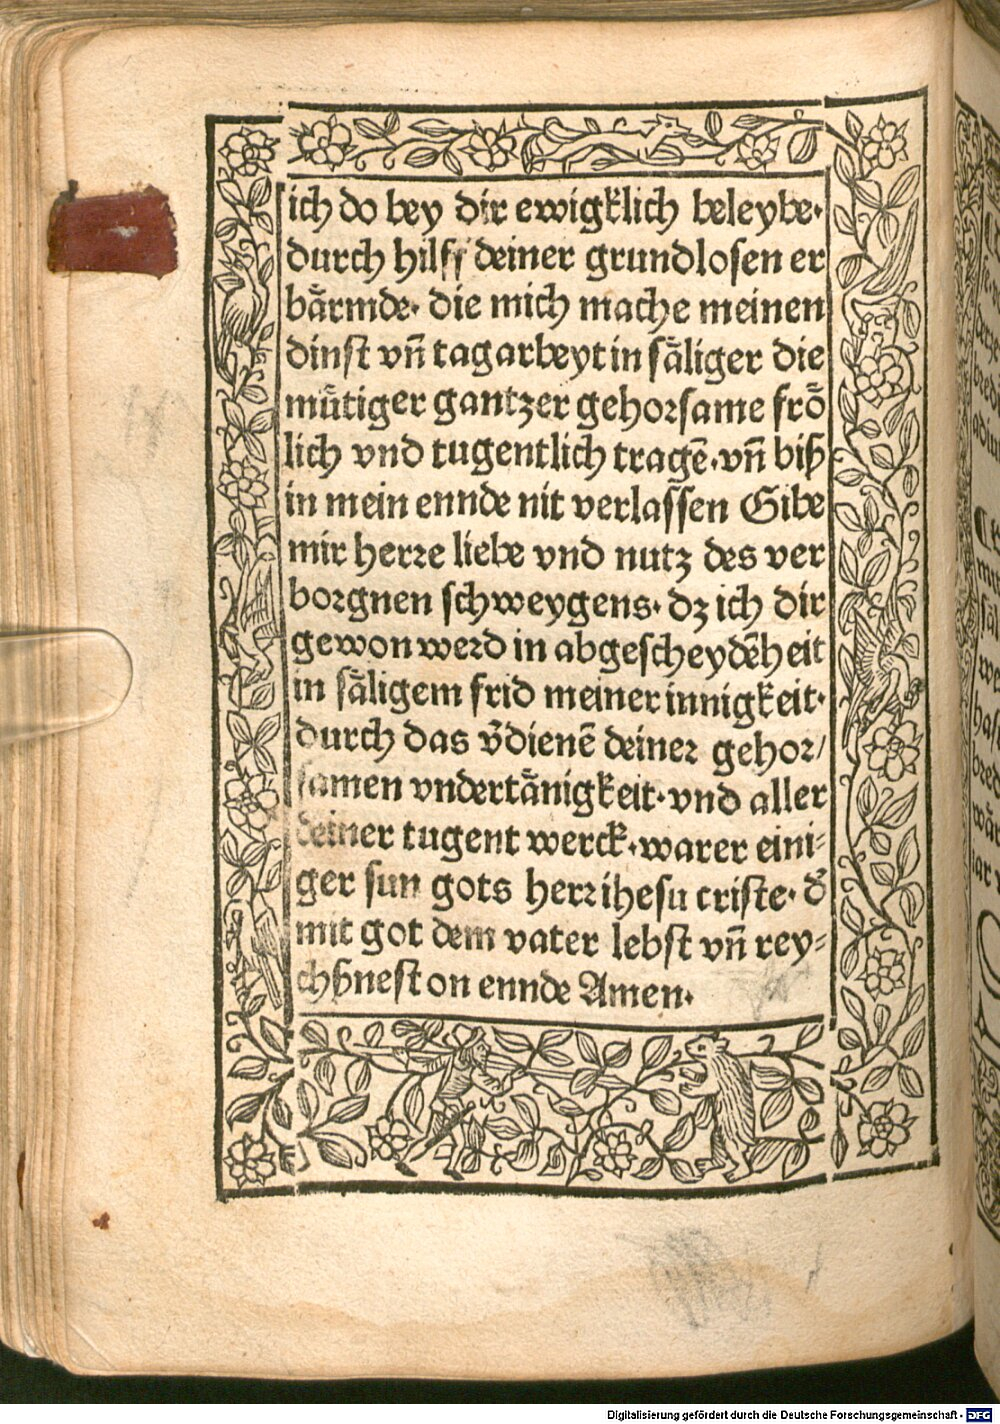 ich do bey dir ewigklich beleybe.
durch hilff deiner grundlosen er
bärmde. die mich mache meinen
dinst vñ tagarbeyt in säliger die
mütiger gantzer gehorsame frö
lich vnd tugentlich tragē. vñ biß
in mein ennde nit verlassen Gibe
mir herre liebe vnd nutz des ver
borgnen schweygens. dz ich dir
gewon werd in abgescheydēheit
in säligem frid meiner innigkeit.
durch das v̄dienē deiner gehor/
samen vndertänigkeit. vnd aller
deiner tugent werck. warer eini-
ger sun gots herr ihesu criste. d̄
mit got dem vater lebst vñ rey-
chßnest on ennde Amen.
Digitalisierung gefördert durch die Deutsche Forschungsgemeinschaft - DFG